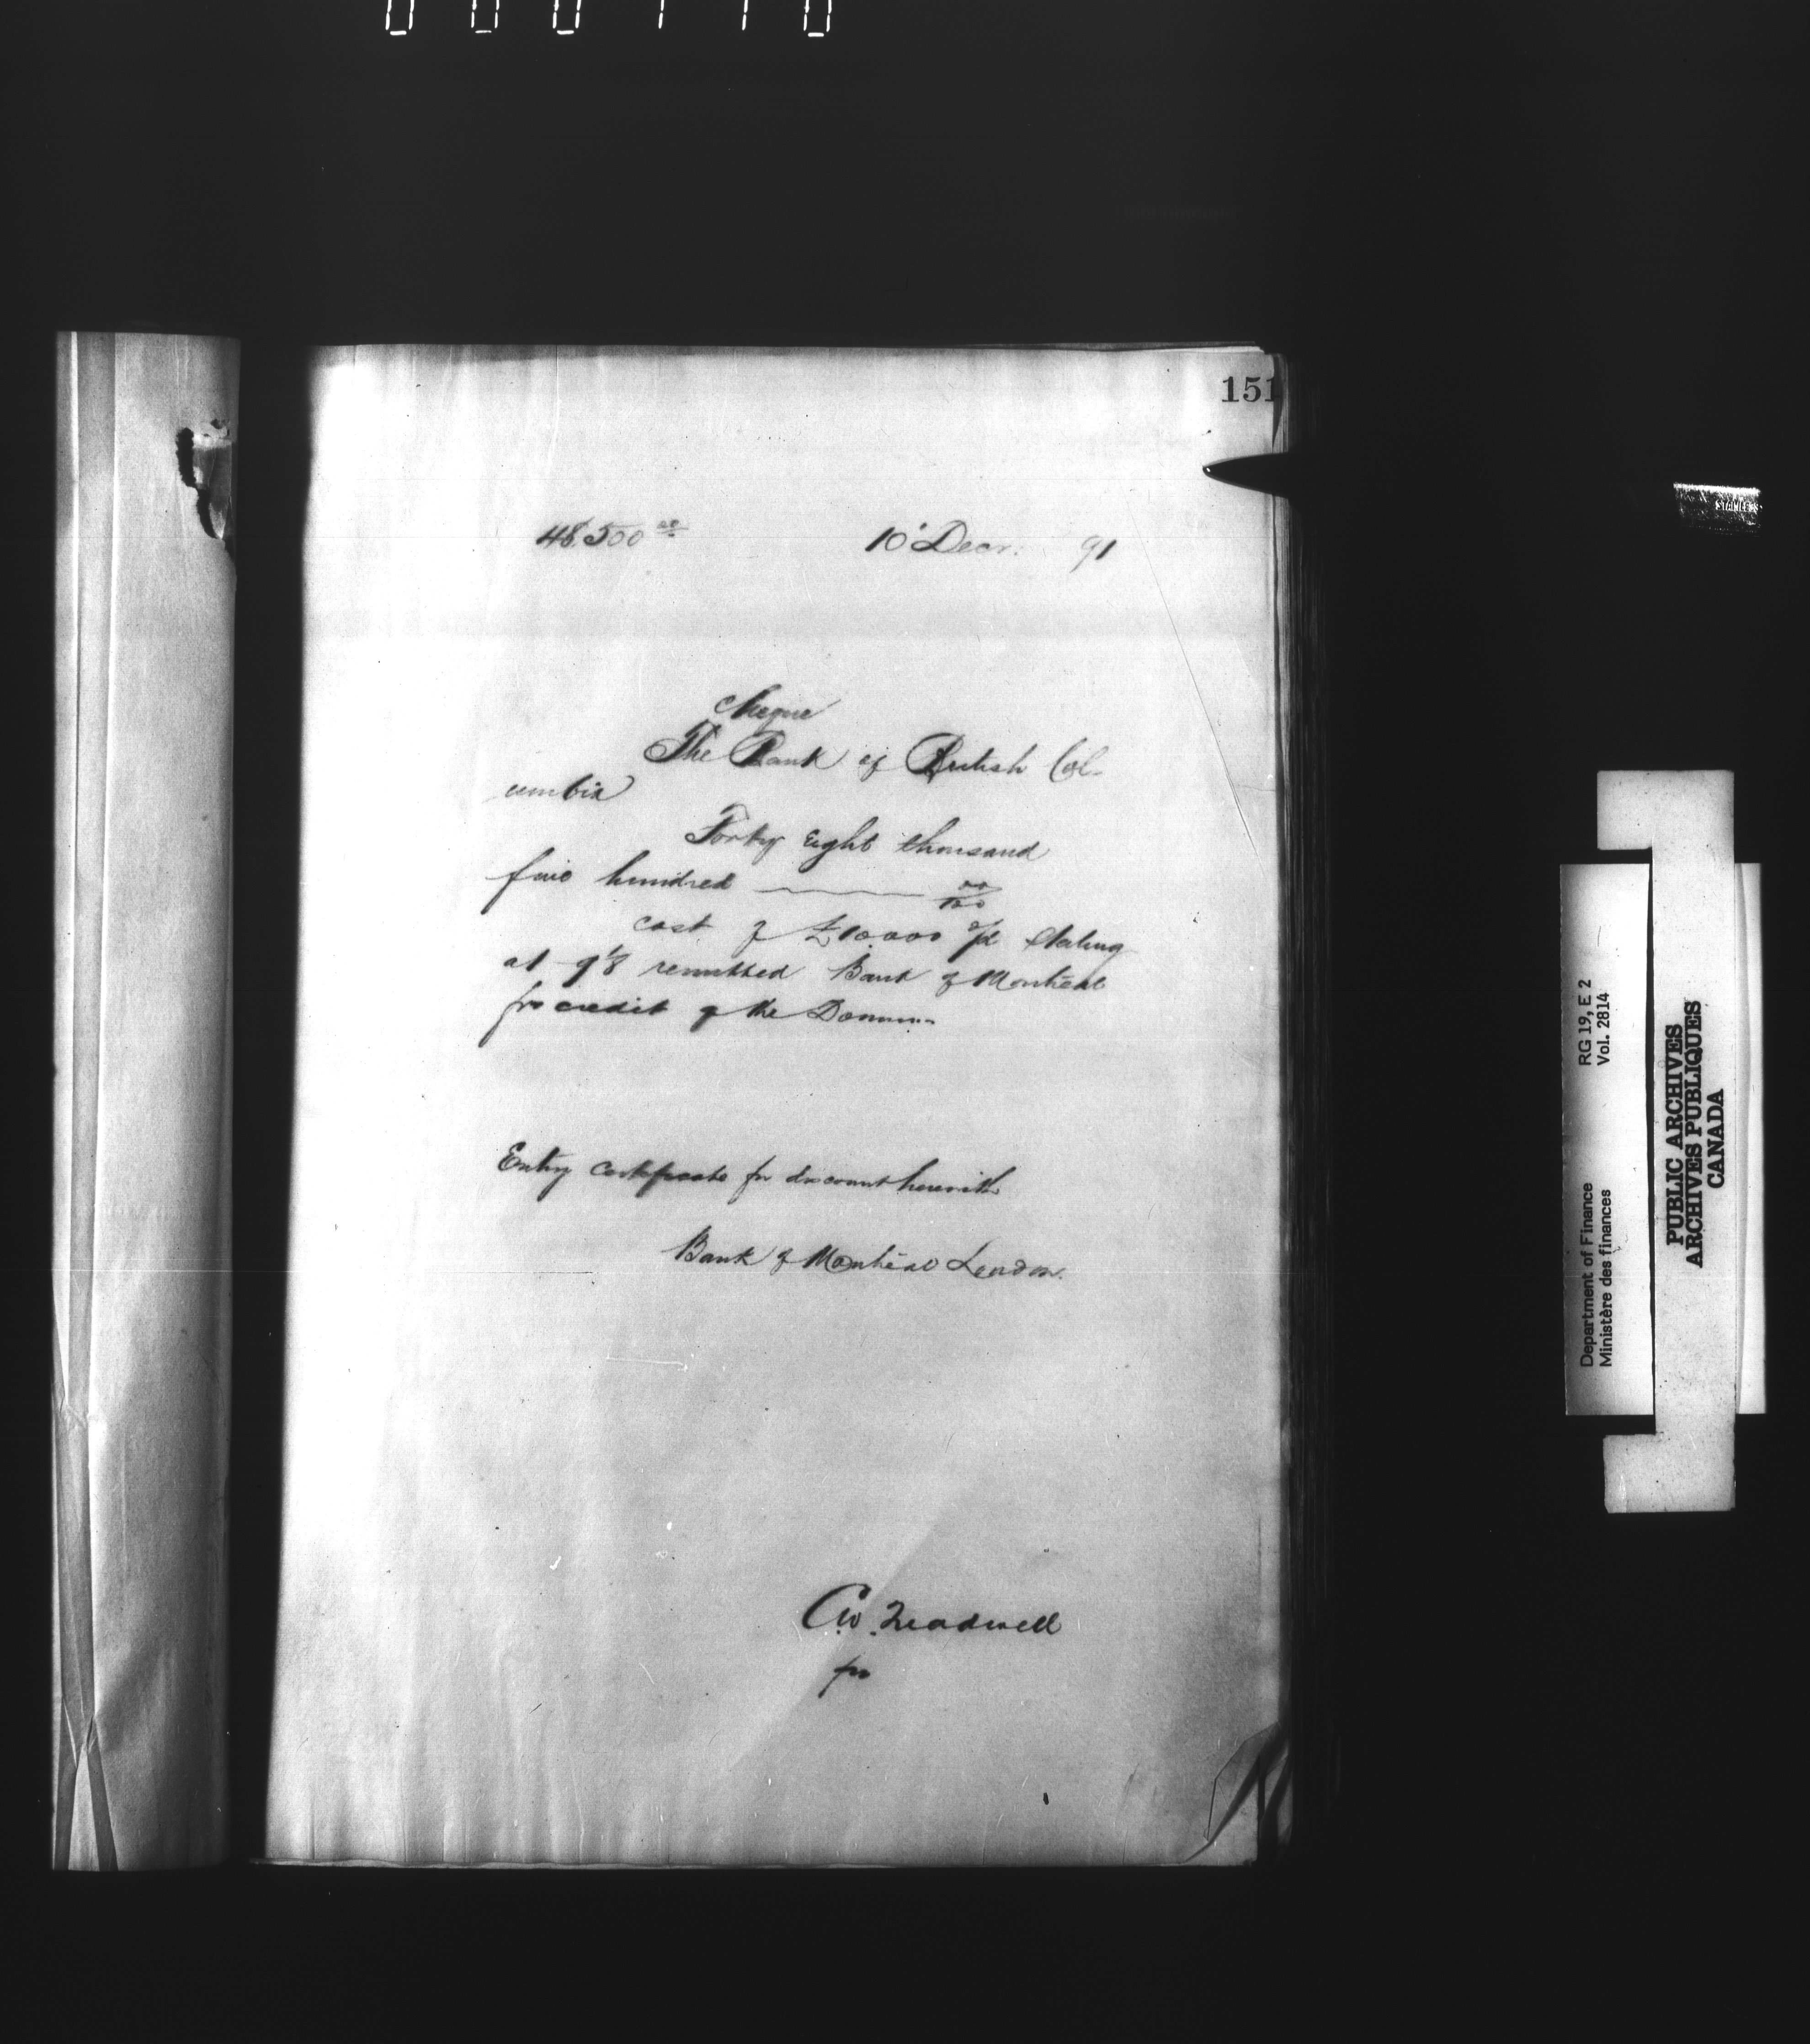 151
48,500 00 10 Decr. 91
Cheque
The Bank of British Col-
umbia
Forty Eight thousand
five hundred 00/100
cost of £10.000 Sterling
at 9 1/8 remitted Bank of Montreal
for credit of the Domn.
Entry Certificate for discount herewith
Bank of Montreal London.
CW. Treadwell
for
STANLEY
RG 19, E 2
Vol. 2814
Department of Finance
Ministère des finances
PUBLIC ARCHIVES
ARCHIVES PUBLIQUES
CANADA